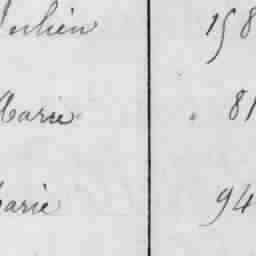 Julien 158
Marie 81
Marie 94